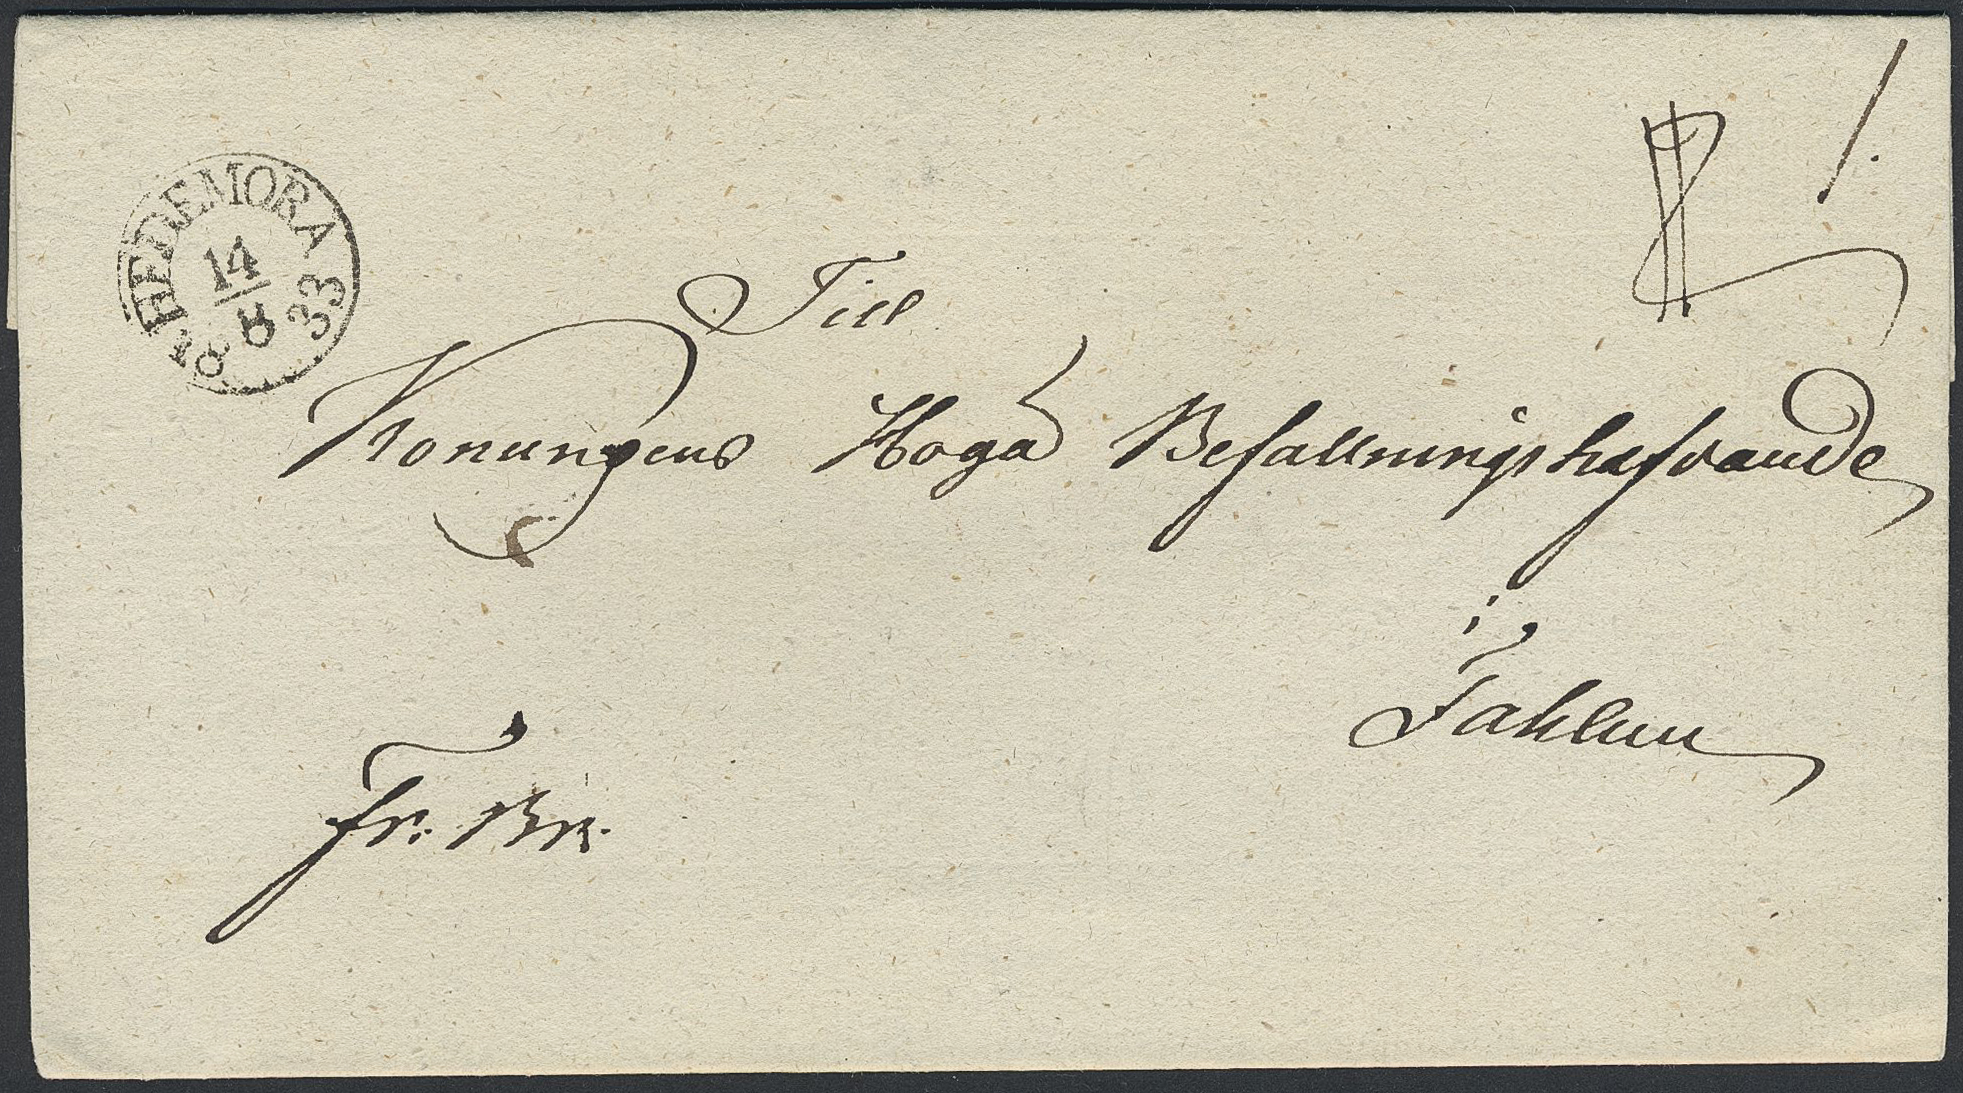 HEDEMORA
14
8
1833
1.
Till
Konungens Höga Befallningshafvande
i
Fahlun
fr. Br.